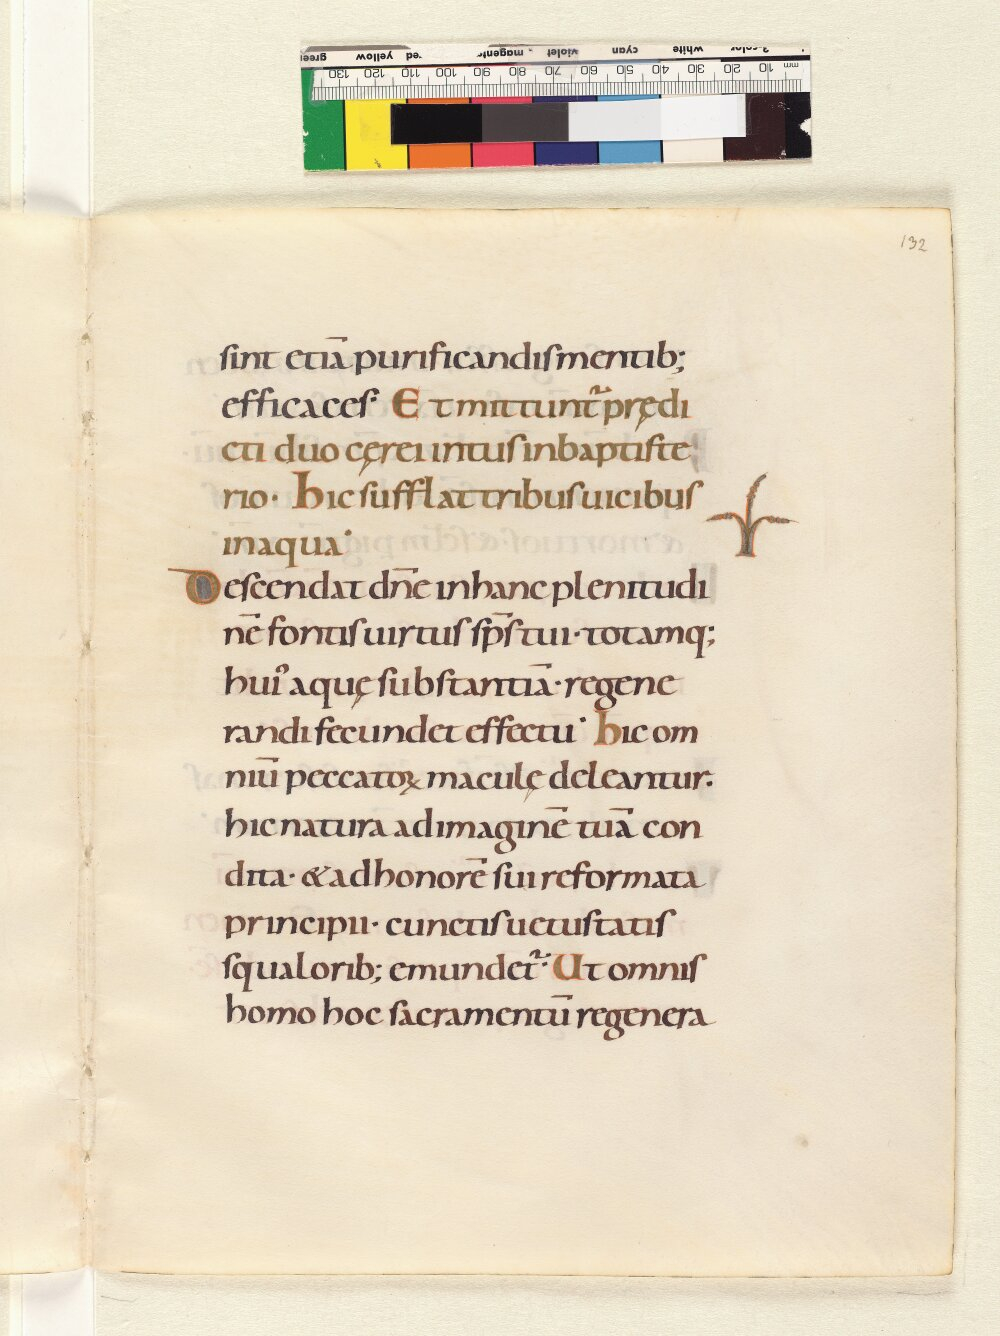 132
sint etiā purificandis mentib;
efficaces· Et mittunt᷑ prędi
cti duo cęrei intus in baptiste
rio· Hic sufflat tribus uicibus
in aqua·
Descendat dn̄e in hanc plenitudi
nē fontis uirtus sp̄s tui· totamq;
hui⁹ aquę substantiā· regene
randi fecundet effectu· Hic om
niū peccatoꝝ maculę deleantur·
hic natura ad imaginē tuā con
dita· & ad honorē sui reformata
principii· cunctis uetustatis
squalorib; emundet᷑· Ut omnis
homo hoc sacramentū regenera
mm 10 20 30 40 50 60 70 80 90 100 110 120 130
3-color white cyan violet magenta red yellow green